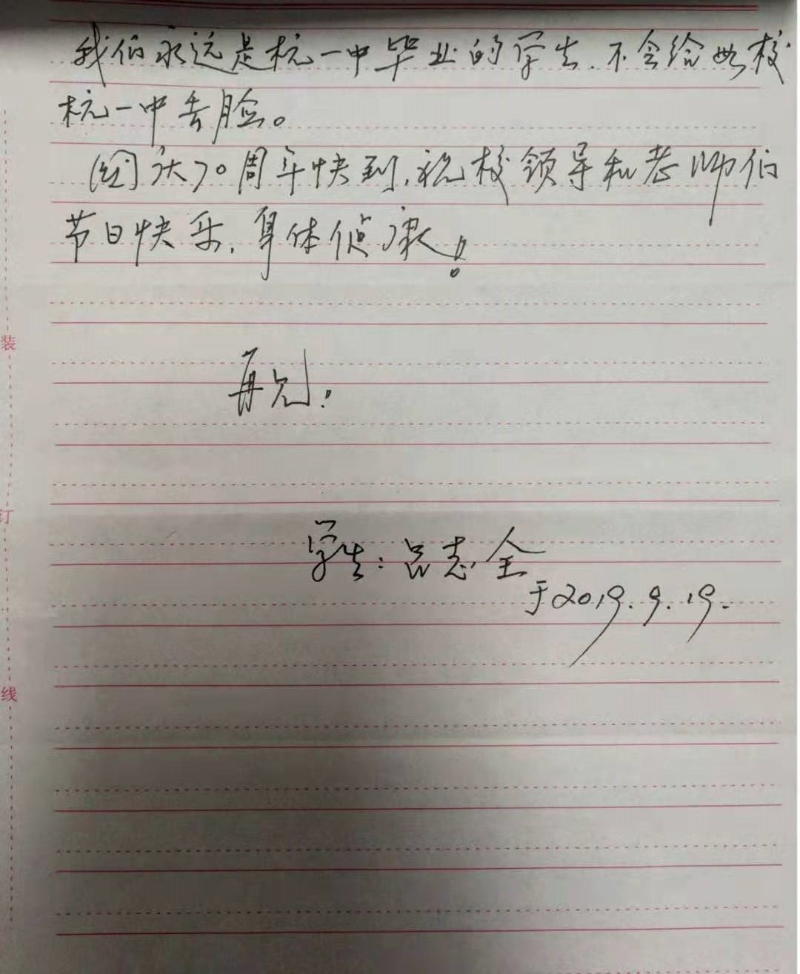 我们永远是杭一中毕业的学生.不会给母校
杭一中丢脸。
国庆70周年快到,祝校领导和老师们
节日快乐,身体健康!
再见!
学生:吕志全
于2019.9.19.
装
订
线